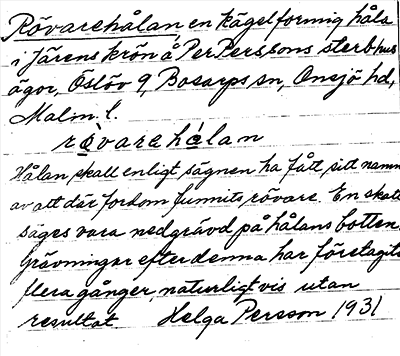 Rövarehålan, en kägelformig håla
i Järens krön å Per Perssons sterbhus
ägor, Öslöv 9, Bosarps sn, Onsjö hd,
Malm. l.
rövarehålan
Hålan skall enligt sägnen ha fått sitt namn
av att där fordom funnits rövare. En skatt
säges vara nedgrävd på hålans botten.
Grävningar efter denna har företagits
flera gånger, naturligtvis utan
resultat Helga Persson 1931